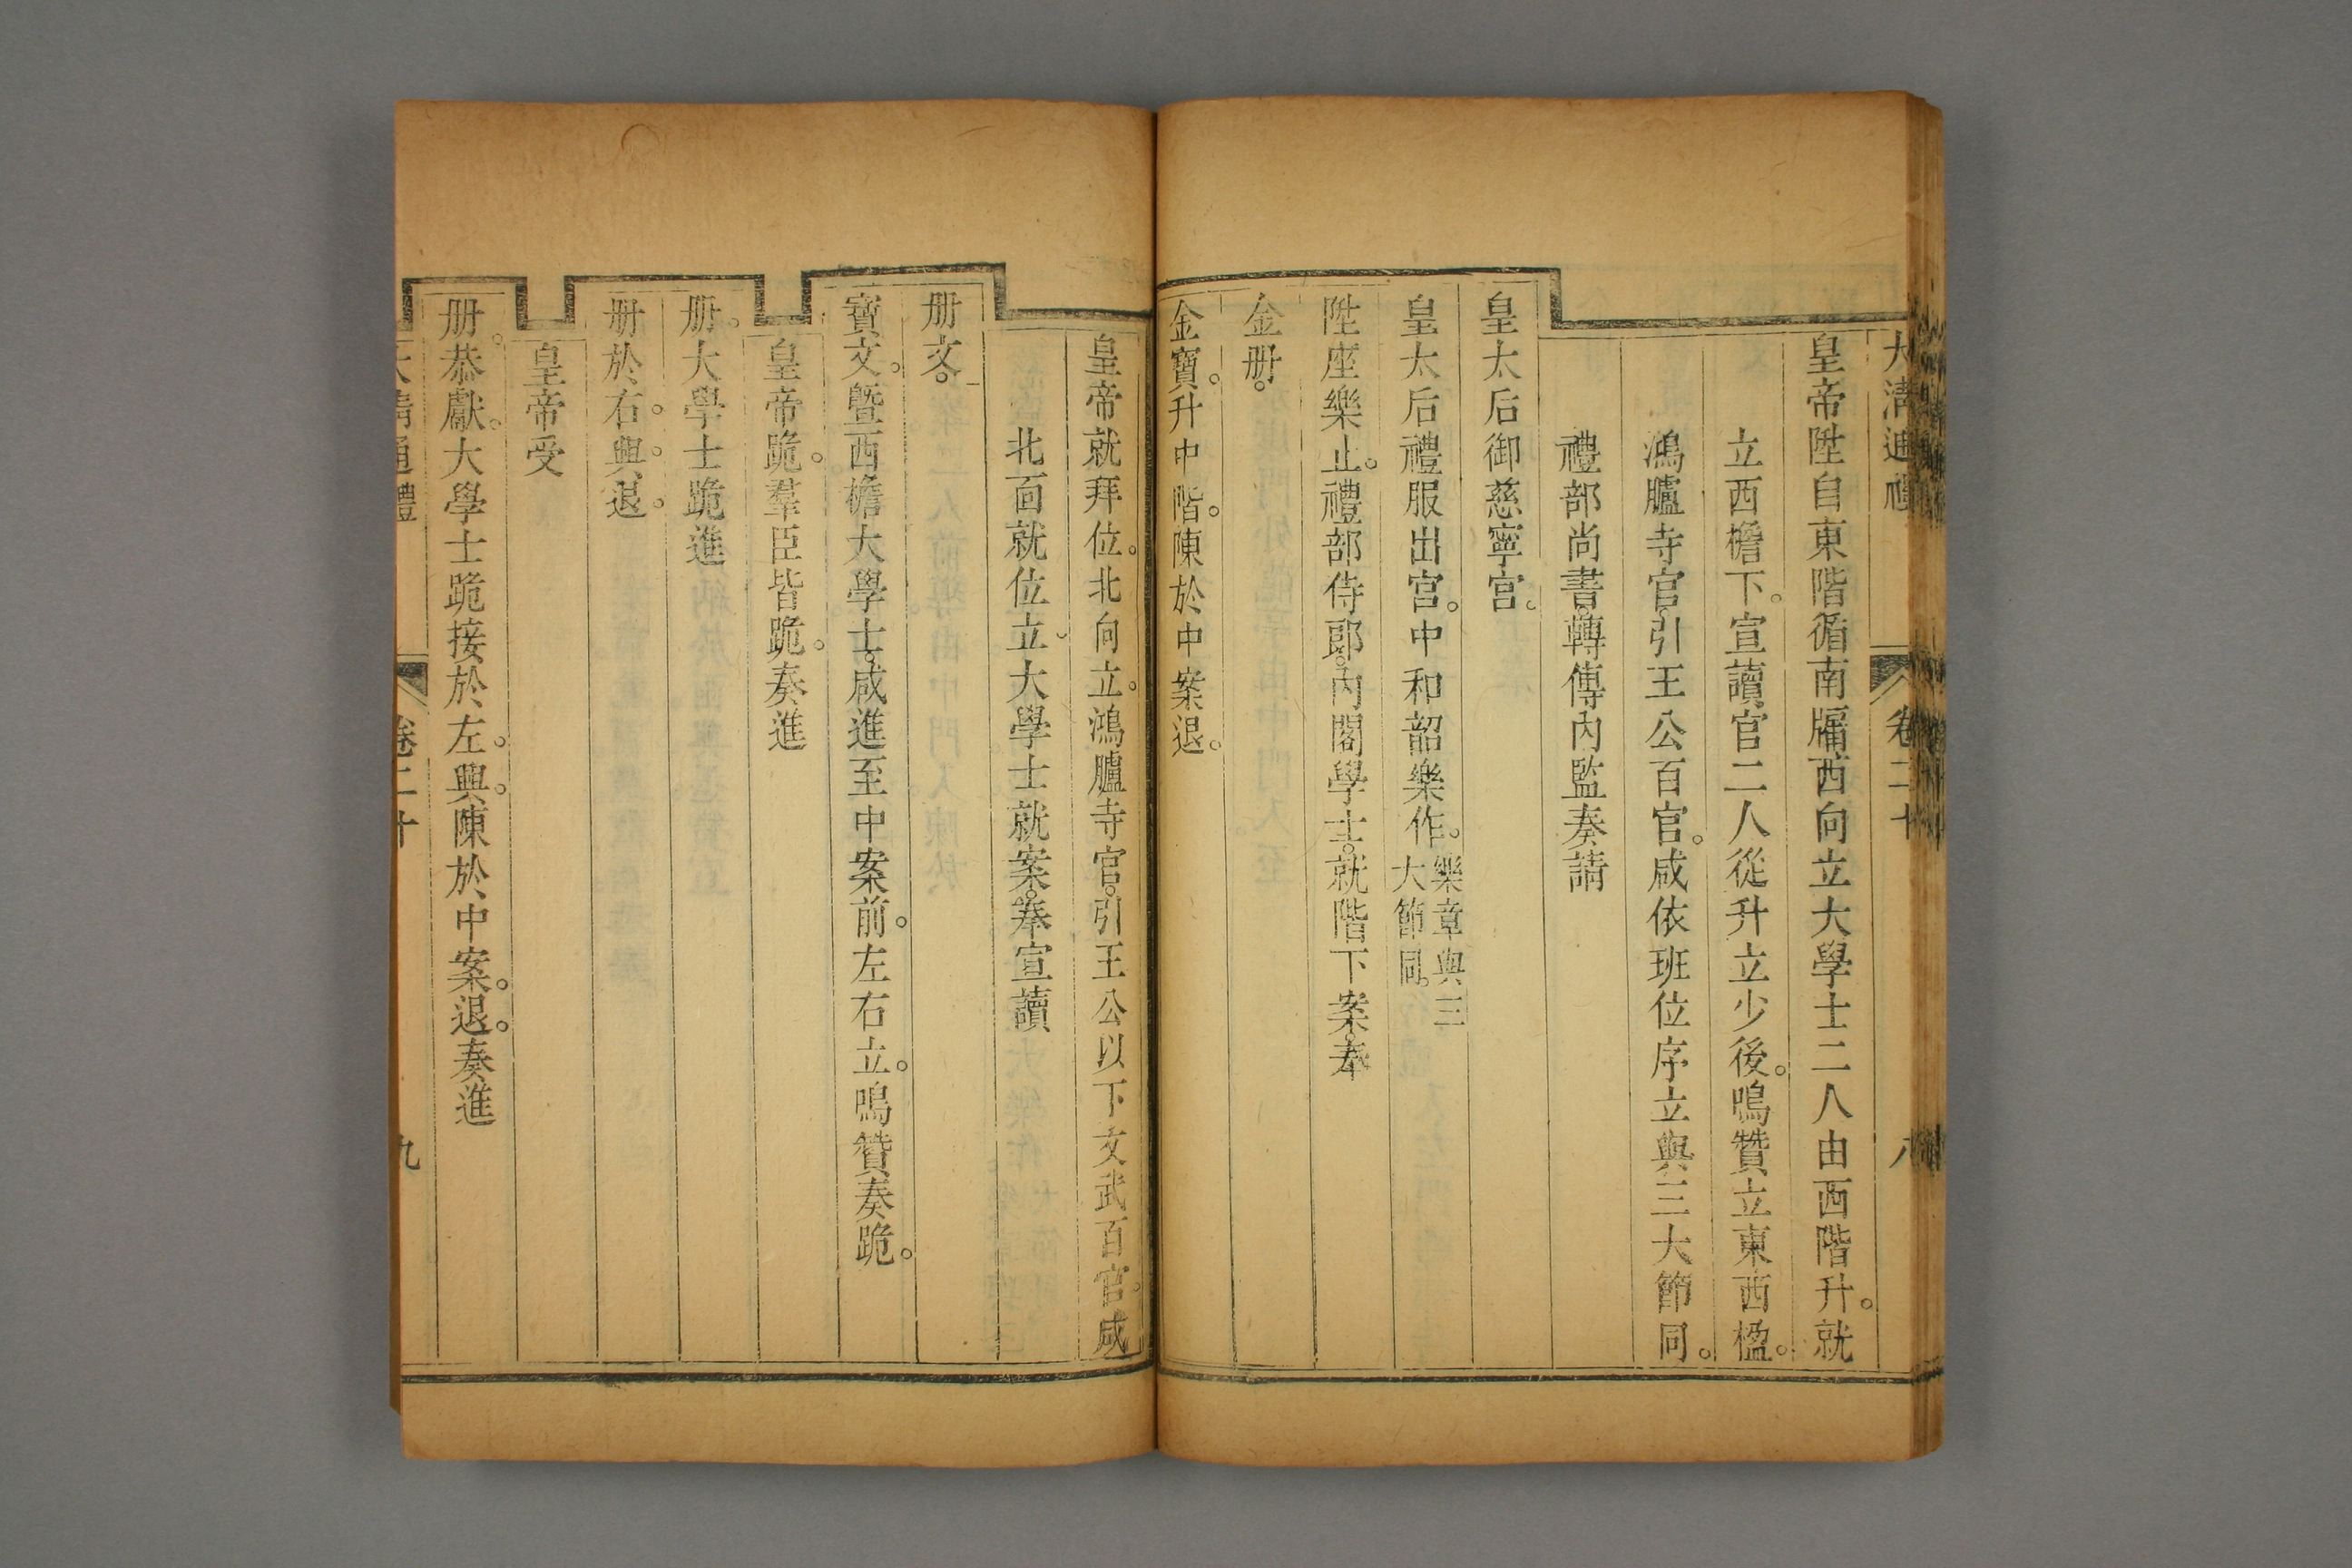 大清通禮 卷二十 八
皇帝陞自東階循南牖西向立大學士二人由西階升。就
立西檐下。宣讀官二人從升立少後。鳴贊立東西楹。
鴻臚寺官。引王公百官。咸依班位序立與三大節同。
禮部尚書。轉傳內監奏請
皇太后御慈寧宮。
皇太后禮服出宮。中和韶樂作。樂章與三大節同。
陞座樂止。禮部侍郎。內閣學士。就階下案。奉
金册。
金寶。升中階。陳於中案退。
皇帝就拜位。北向立。鴻臚寺官。引王公以下文武百官。咸
北面就位立。大學士就案。奉宣讀
册文。
寶文。曁西檐大學士。咸進至中案前。左右立。鳴贊奏跪。
皇帝跪。羣臣皆跪。奏進
册。大學士跪進
册於右。興。退。
皇帝受
册。恭獻。大學士跪接於左。興。陳於中案。退。奏進
大清通禮 卷二十 九